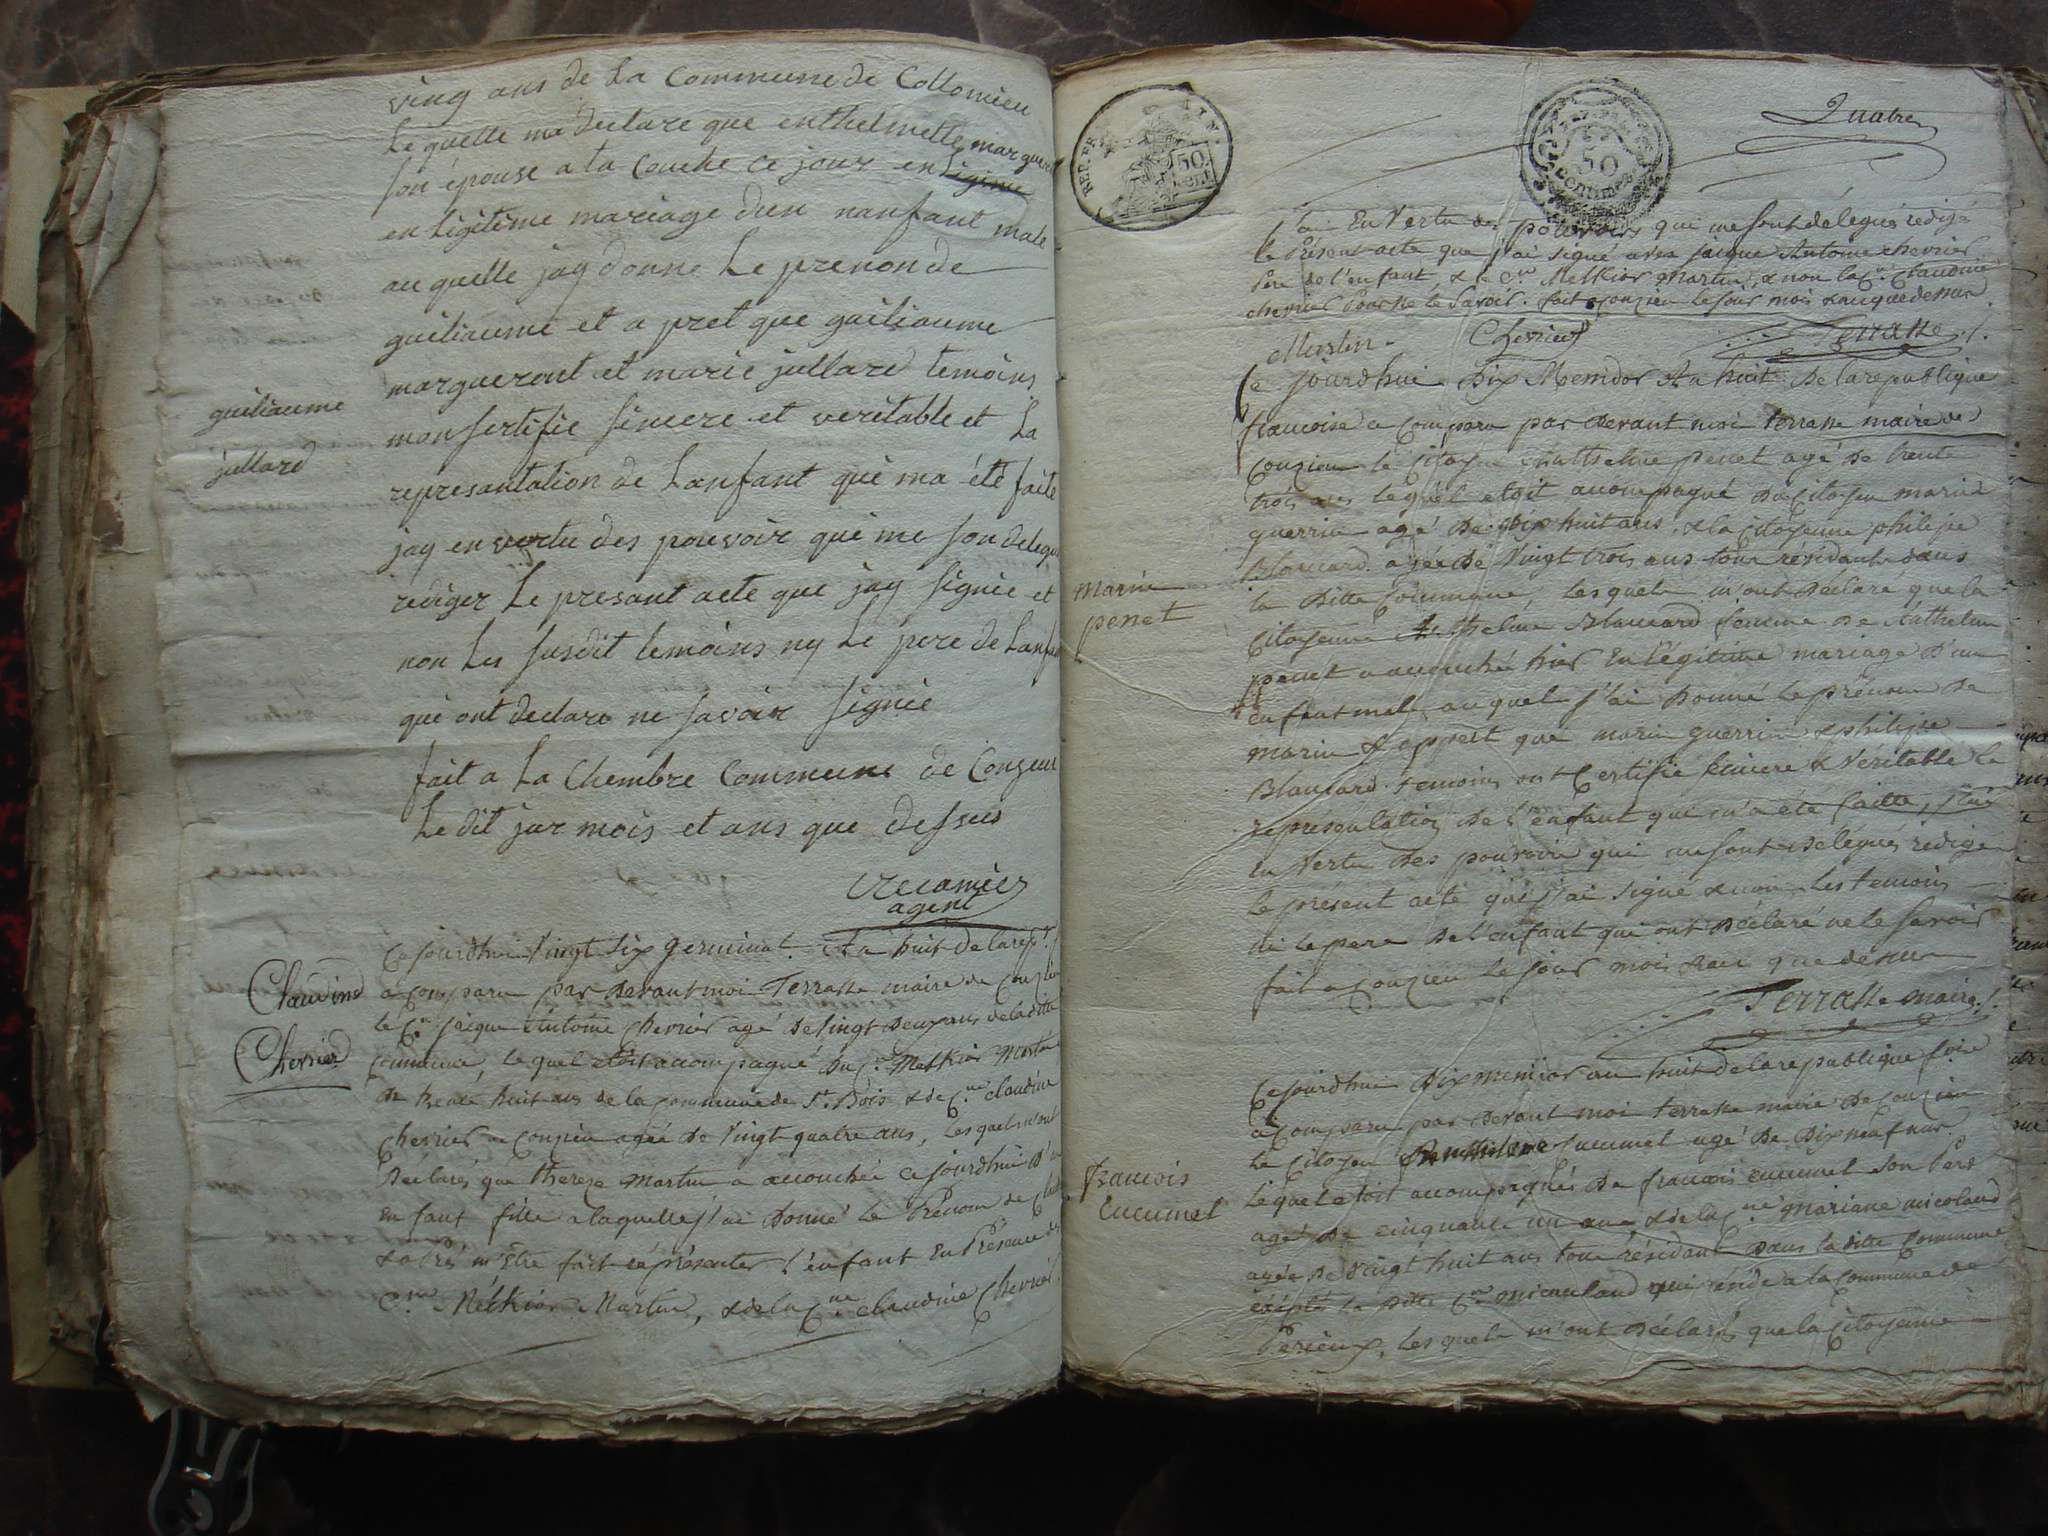 ving ans de La Commune de Collomieu
Le quelle ma declare que enthelmette marguer
son épouse a la Couche ce jour en Ligime
en Ligitime mariage d'un nanfant male
au quelle jay donne Le prenon de
guiliaume et a pret que guiliaume
margueront et marie jullard temoins
mon sertifie sincere et veritable et La
represantation de Lanfant que ma été faite
jay en vertu des pouvoir que me son delegu
rediger Le presant acte que jay signée et
non Les susdit temoins ny Le pere de Lanfa
qui ont declare ne savoir signée
fait a La Chembre Commune de Conzieu
Le dit jur mois et ans que dessus
guiliaume
jullard
Recamier
agent
Claudine
Chevrier
Cejourdhui Vingt Six germinal An huit de la rep.
a comparu par devant moi Terrasse maire de Conzieu
le C.en jaique Antoine Chevrier agé de vingt deux ans de la ditte
Commune, lequel etoit acompagné du C.en Melkior Martin
de trente huit ans de la commune de St. Bois & de C.ne Claudine
Chevrier a conzieu agée de Vingt quatre ans, les quel m'ont
Déclarés que thereze Martin a acouchée cejourdhui d'un
enfant fille a laquelle j'ai donné le Prénom de Claud
& après m'être fait représenter l'enfant En Présence du
C.en Melkior Martin, & de la C.ne Claudine Chevrier
REP. FR.
AIN
50
cent.
50
centimes
Quatre
j'ai En Vertu des pouvoirs qui me sont délégué redigé
le Présent acte que j'ai signé avec jaique Antoine chevrier
Père de l'enfant, & le C.en Melkior Martin, & non la C.ne Claudine
chevrier Pour ne le Savoir. fait a conzieu le jour mois & an que dessus
Martin
Chevrier
Terrasse
Ce jourdhui Dix Mesidor An huit De la republique
francoise a comparu par devant moi terrasse maire de
Conzieu le Citoyen Anthelme penet agé de trente
trois ans lequel etoit acompagné du Citoyen marin
guerrin agé de Dix huit ans & la Citoyenne philipe
Blancard agée de Vingt trois ans tous résidant dans
la Ditte Commune, lesquels m'ont déclaré que la
Citoyenne Anthelme Blancard femme de Anthelme
penet a acouchée hier En légitime mariage d'un
enfant mal auquel j'ai Donné le prénom de
marin & appret que marin guerrin & philipe
Blancard temoins ont Certifié sincere & Véritable la
représentation de l'enfant que m'a été faitte, j'ai
En Vertu des pouvoir qui me sont delégués rédiger
Le présent acte que j'ai signé & non les temoins
ni le pere de l'enfant qui ont déclaré ne le savoir
fait a Conzieu le jour mois & an que dessus
marin
penet
Terrasse maire
Cejourdhui Dix mesidor an huit de la republique
a comparu par devant moi terrasse maire de conzieu
le Citoyen Anthelme Cucumel agé de Dix neuf ans
lequel etoit acompagnés de francois cucumel son Pere
agé de cinquante un ans & de la C.ne mariane micoland
agée de vingt huit ans tous résidant dans la ditte commune
éxépté la ditte C.ne micouland qui réside a la commune de
Perieux, lesquels m'ont déclarés que la Citoyenne
francois
Cucumel